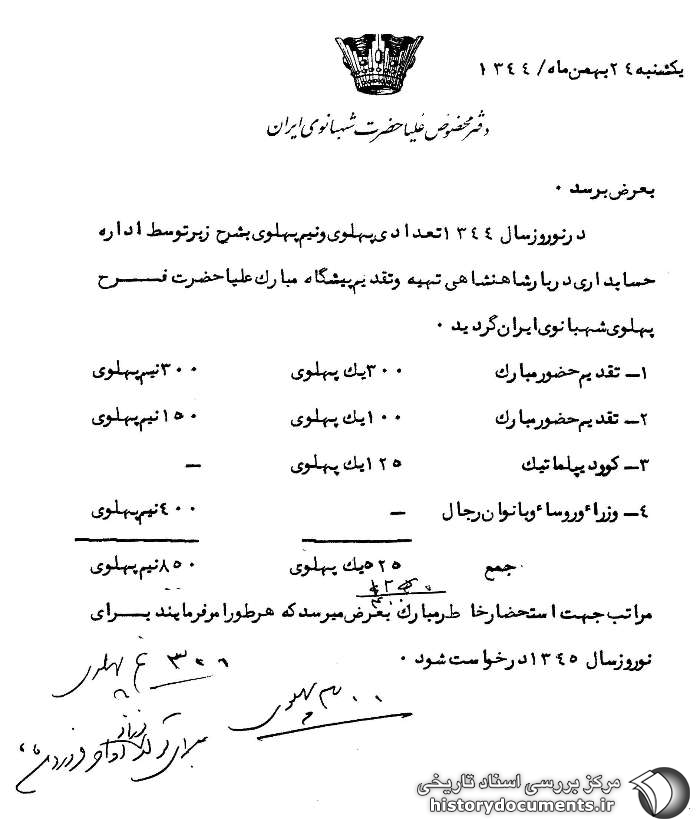 یکشنبه ۲۴ بهمن ماه / ۱۳۴۴
دفتر مخصوص علیاحضرت شهبانوی ایران
بعرض برسد ۰
در نوروز سال ۱۳۴۴ تعدادی پهلوی و نیم پهلوی بشرح زیر توسط اداره
حسابداری دربار شاهنشاهی تهیه و تقدیم پیشگاه مبارک علیاحضرت فرح
پهلوی شهبانوی ایران گردید ۰
۱ـ تقدیم حضور مبارک ۳۰۰ یک پهلوی ۳۰۰ نیم پهلوی
۲ـ تقدیم حضور مبارک ۱۰۰ یک پهلوی ۱۵۰ نیم پهلوی
۳ـ کور دیپلماتیک ۱۲۵ یک پهلوی ـ
۴ـ وزراء و روساء و بانوان رجال ـ ۴۰۰ نیم پهلوی
جمع ۵۲۵ یک پهلوی ۸۵۰ نیم پهلوی
مراتب جهت استحضار خاطر مبارک بعرض میرسد که هر طور امر فرمایند برای
نوروز سال ۱۳۴۵ درخواست شود ۰
پهلوی
پهلوی
برای
مرکز بررسی اسناد تاریخی
historydocuments.ir